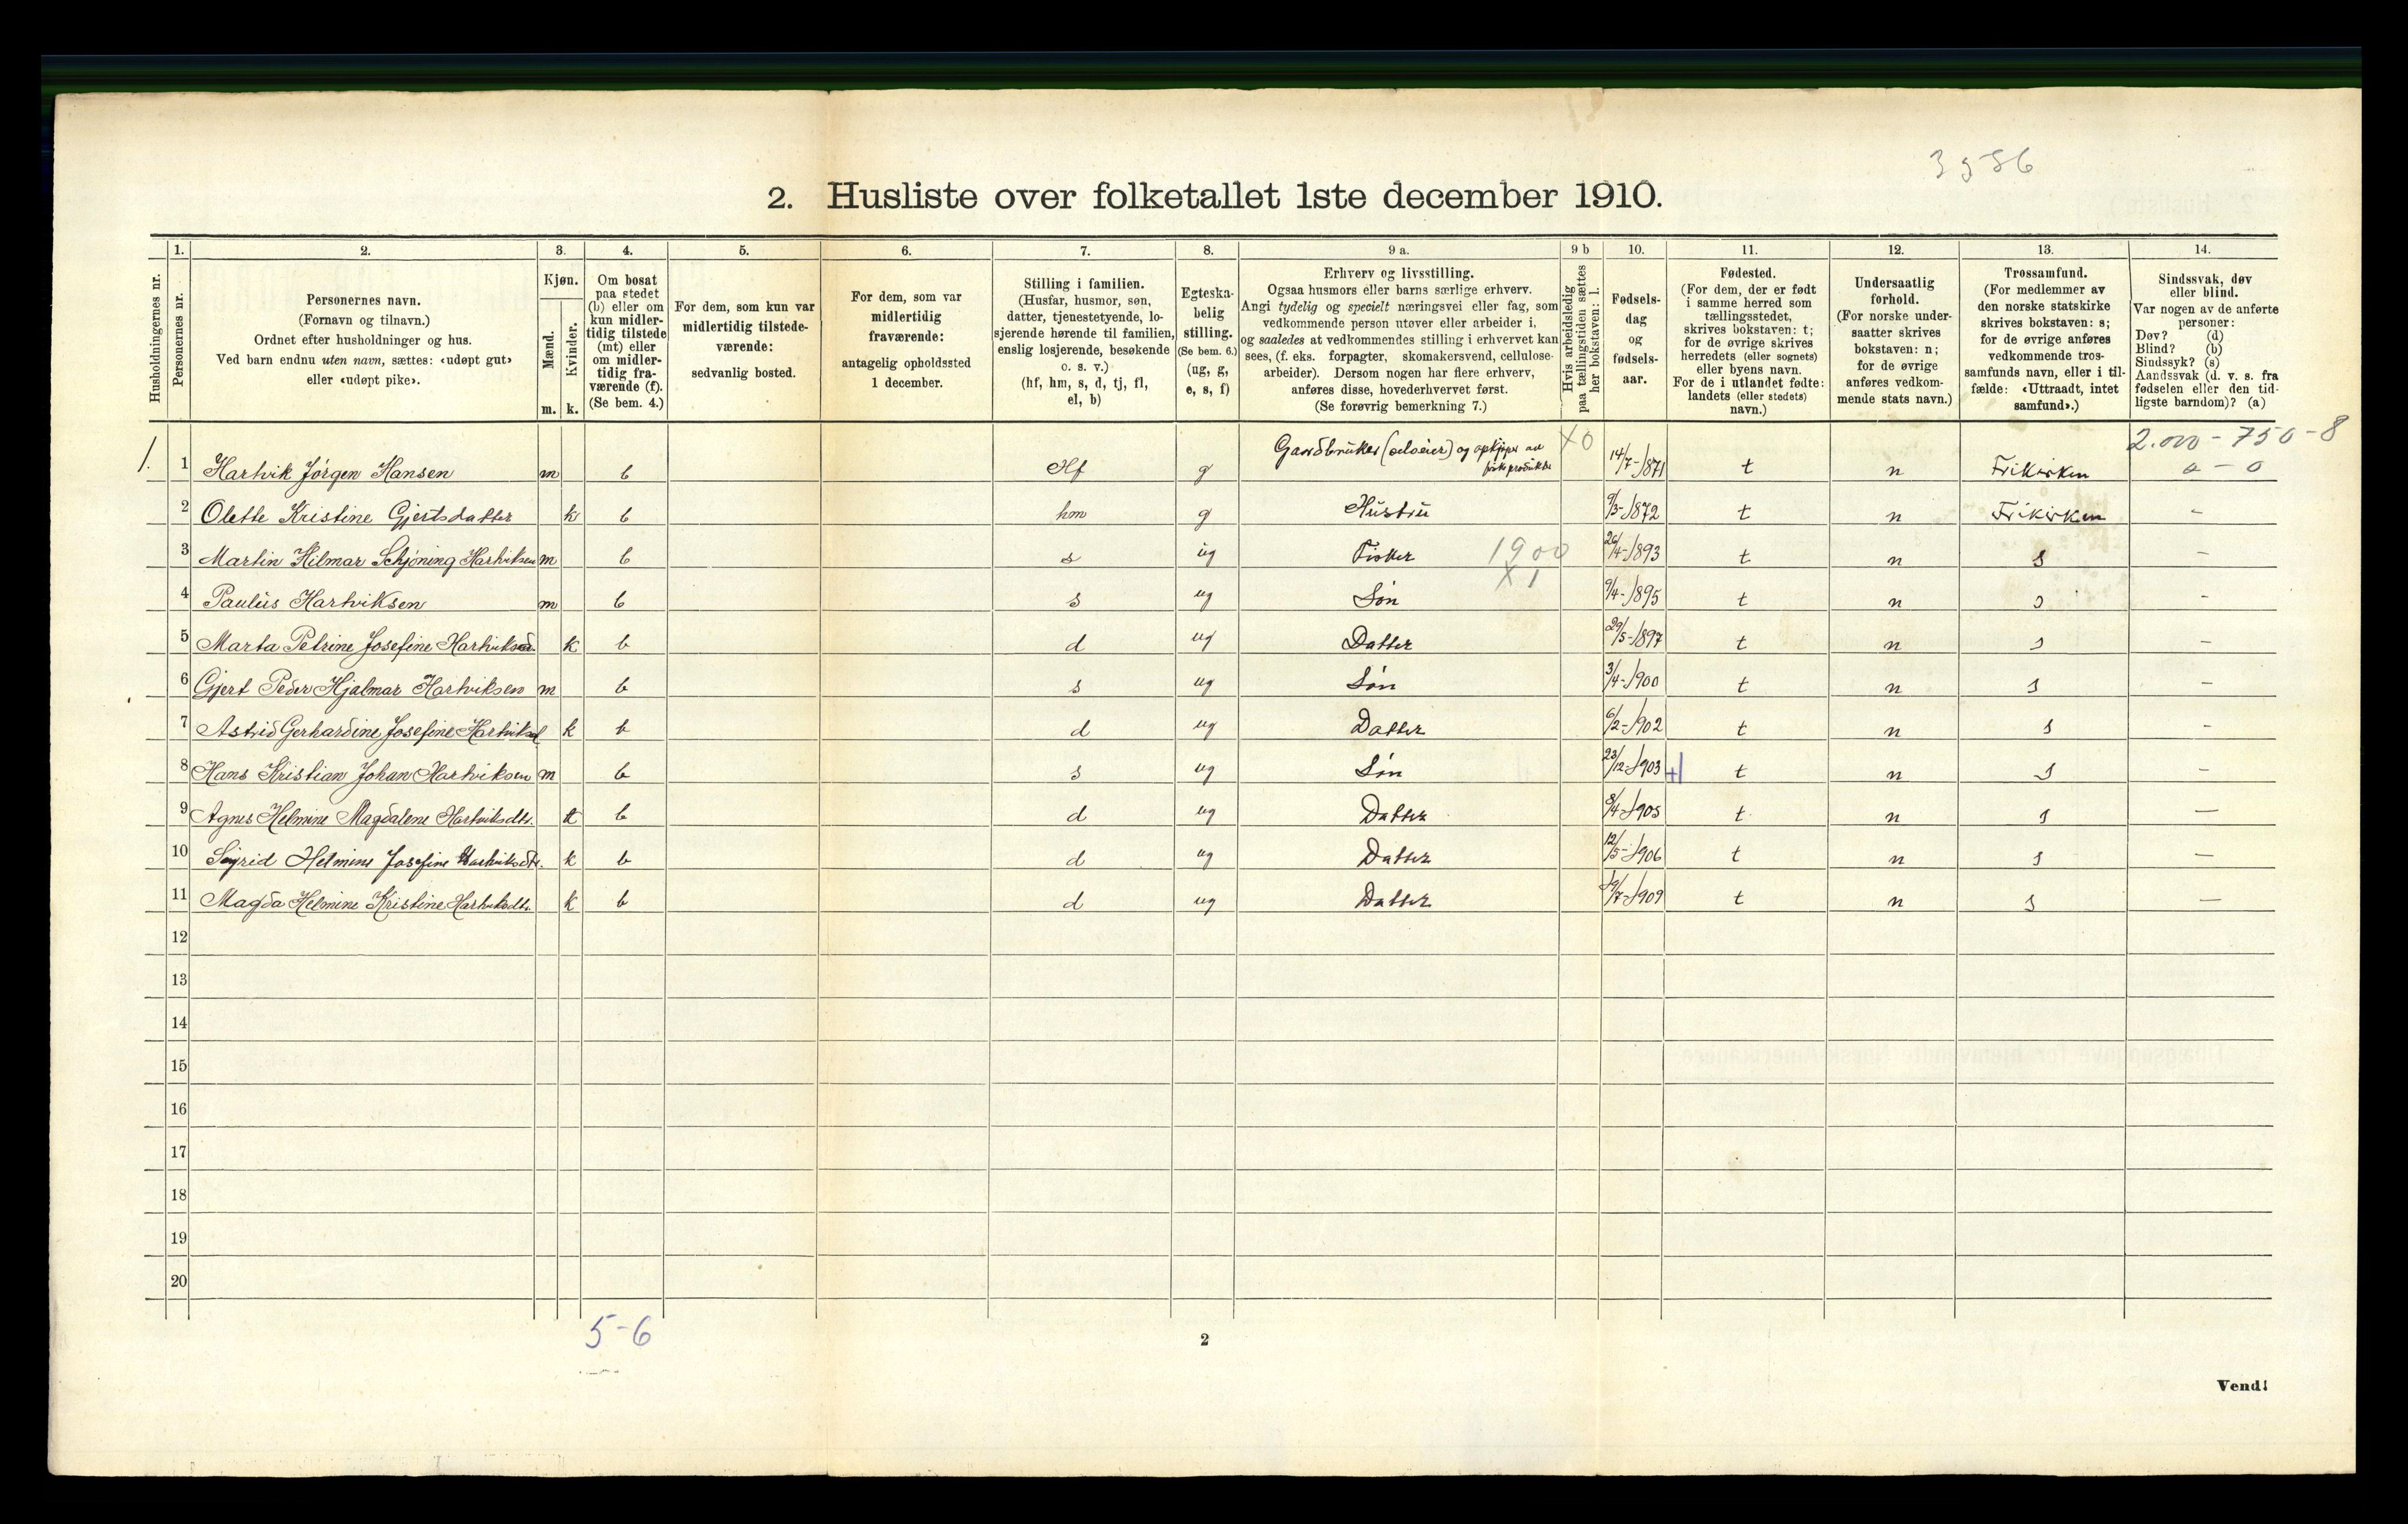 3586
2. Husliste over folketallet 1ste december 1910.
Husholdningernes nr.
1.
Personernes nr.
2.
Personernes navn.
(Fornavn og tilnavn.)
Ordnet efter husholdninger og hus.
Ved barn endnu uten navn, sættes: «udøpt gut»
eller «udøpt pike».
3.
Kjøn.
Mænd.
Kvinder.
m. k.
4.
Om bosat
paa stedet
(b) eller om
kun midler-
tidig tilstede
(mt) eller
om midler-
tidig fra-
værende (f).
(Se bem. 4.)
5.
For dem, som kun var
midlertidig tilstede-
værende:
sedvanlig bosted.
6.
For dem, som var
midlertidig
fraværende:
antagelig opholdssted
1 december.
7.
Stilling i familien.
(Husfar, husmor, søn,
datter, tjenestetyende, lo-
sjerende hørende til familien,
enslig losjerende, besøkende
o. s. v.)
(hf, hm, s, d, tj, fl,
el, b)
8.
Egteska-
belig
stilling.
(Se bem. 6.)
(ug, g,
e, s, f)
9 a.
Erhverv og livsstilling.
Ogsaa husmors eller barns særlige erhverv.
Angi tydelig og specielt næringsvei eller fag, som
vedkommende person utøver eller arbeider i,
og saaledes at vedkommendes stilling i erhvervet kan
sees, (f. eks. forpagter, skomakersvend, cellulose-
arbeider). Dersom nogen har flere erhverv,
anføres disse, hovederhvervet først.
(Se forøvrig bemerkning 7.)
9 b
Hvis arbeidsledig
paa tællingstiden sættes
her bokstaven: l.
10.
Fødsels-
dag
og
fødsels-
aar.
11.
Fødested.
(For dem, der er født
i samme herred som
tællingsstedet,
skrives bokstaven: t;
for de øvrige skrives
herredets (eller sognets)
eller byens navn.
For de i utlandet fødte:
landets (eller stedets)
navn.)
12.
Undersaatlig
forhold.
(For norske under-
saatter skrives
bokstaven: n;
for de øvrige
anføres vedkom-
mende stats navn.)
13.
Trossamfund.
(For medlemmer av
den norske statskirke
skrives bokstaven: s;
for de øvrige anføres
vedkommende tros-
samfunds navn, eller i til-
fælde: «Uttraadt, intet
samfund».)
14.
Sindssvak, døv
eller blind.
Var nogen av de anførte
personer:
Døv? (d)
Blind? (b)
Sindssyk? (s)
Aandssvak (d. v. s. fra
fødselen eller den tid-
ligste barndom)? (a)
2.000 - 750 - 8
0 - 0
1. 1 Hartvik Jørgen Hansen m b Hf g Gardbruker (selveier) og opkjøper av fiskeprodukter X0 14/7-1871 t n Frikirken
2 Olette Kristine Gjertsdatter k b hm g Hustru 9/3-1872 t n Frikirken -
3 Martin Hilmar Schjøning Hartviksen m b s ug Fisker 1900 X1 26/4-1893 t n s -
4 Paulus Hartviksen m b s ug Søn 9/4-1895 t n s -
5 Marta Petrine Josefine Hartviksd. k b d ug Datter 29/5-1897 t n s -
6 Gjert Peder Hjalmar Hartviksen m b s ug Søn 3/4-1900 t n s -
7 Astrid Gerhardine Josefine Hartviksd k b d ug Datter 6/2-1902 t n s -
8 Hans Kristian Johan Hartviksen m b s ug Søn 23/12-1903 +1 t n s -
9 Agnes Helmine Magdalene Hartviksdtr. k b d ug Datter 8/4-1905 t n s -
10 Sigrid Helmine Josefine Hartviksdtr. k b d ug Datter 12/5-1906 t n s -
11 Magda Helmine Kristine Hartviksdtr. k b d ug Datter 19/7-1909 t n s -
12
13
14
15
16
17
18
19
20
5-6
2
Vend!